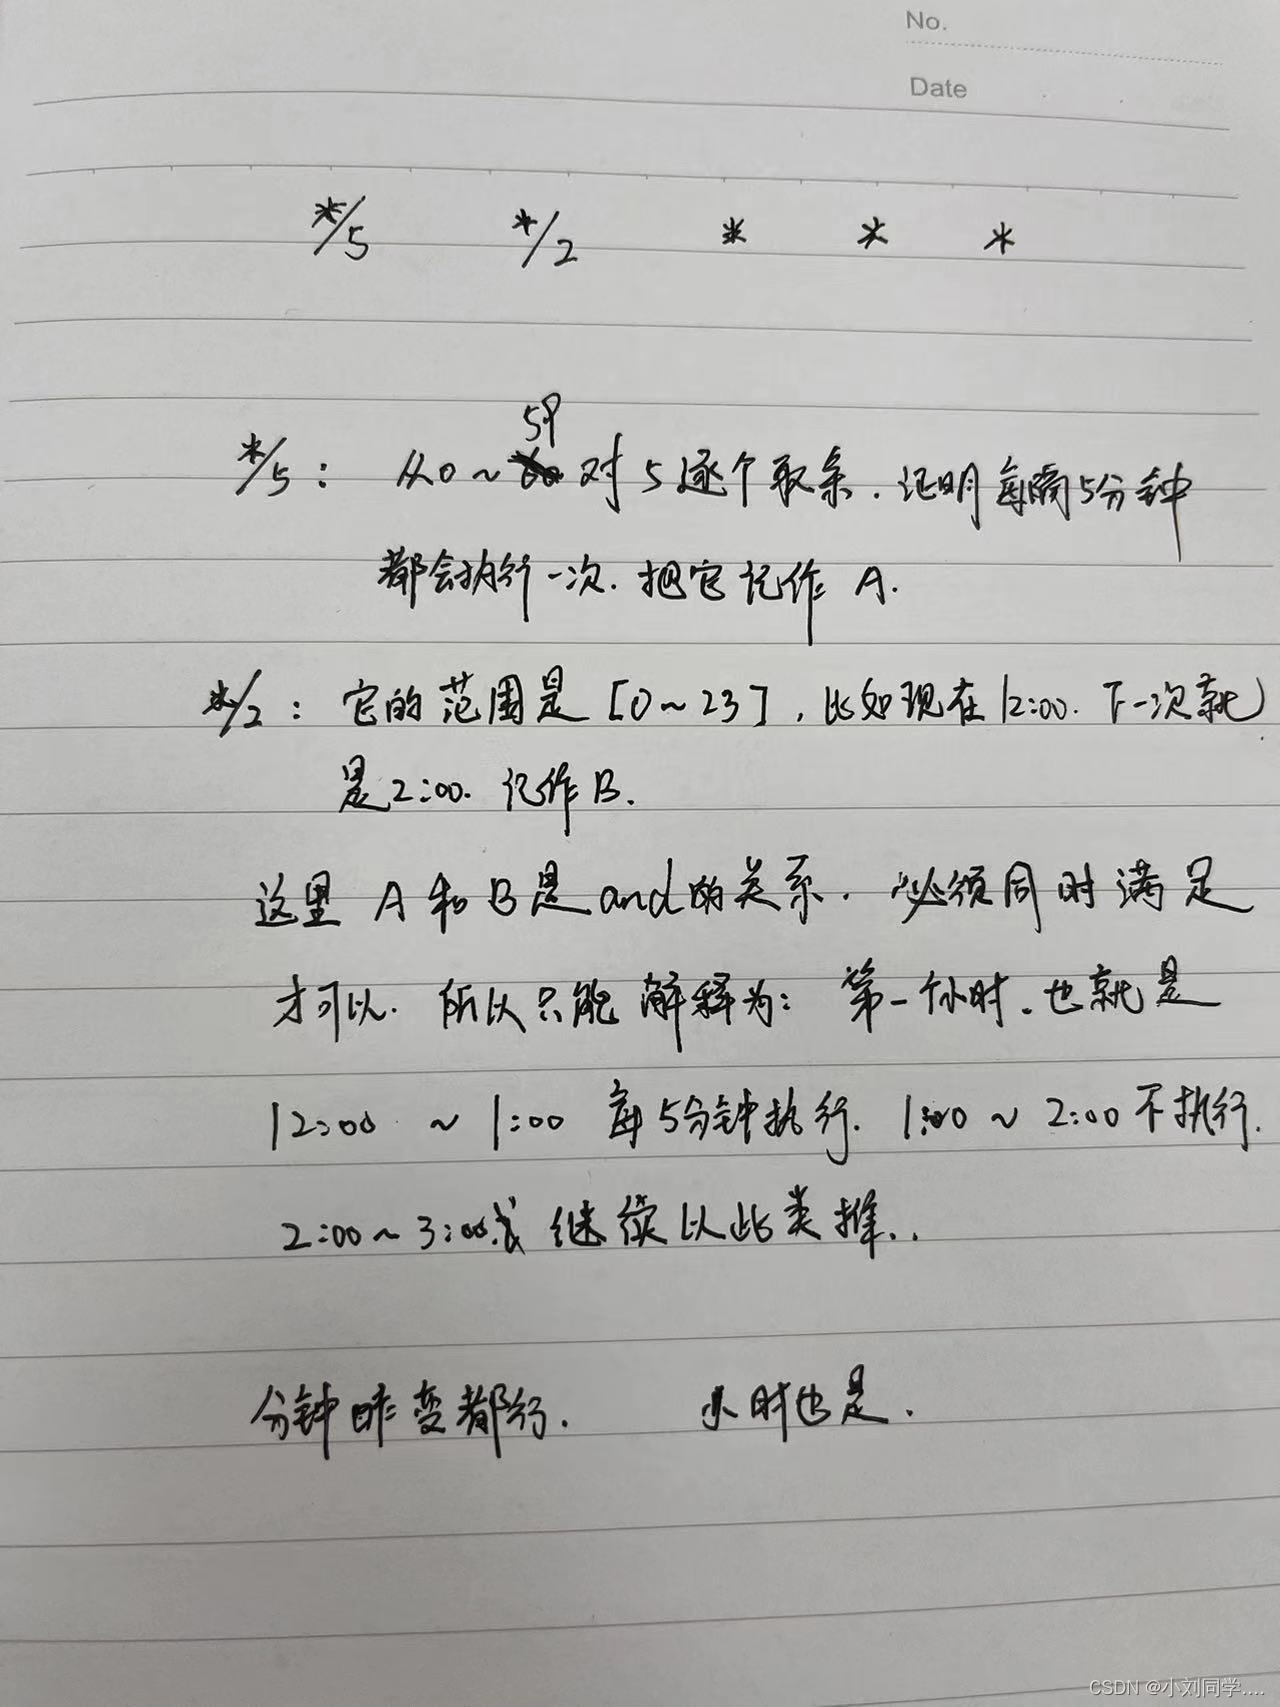 No.
Date
*/5 */2 * * *
59
*/5: 从0~ 对5逐个取余.证明每隔5分钟
都会执行一次.把它记作A.
*/2: 它的范围是[0~23],比如现在12:00.下一次就
是2:00.记作B.
这里A和B是and的关系.必须同时满足
才可以.所以只能解释为:第一个小时.也就是
12:00 ~ 1:00 每5分钟执行. 1:00 ~ 2:00不执行.
2:00~3:00 继续以此类推..
分钟咋变都行. 小时也是.
CSDN @小刘同学....